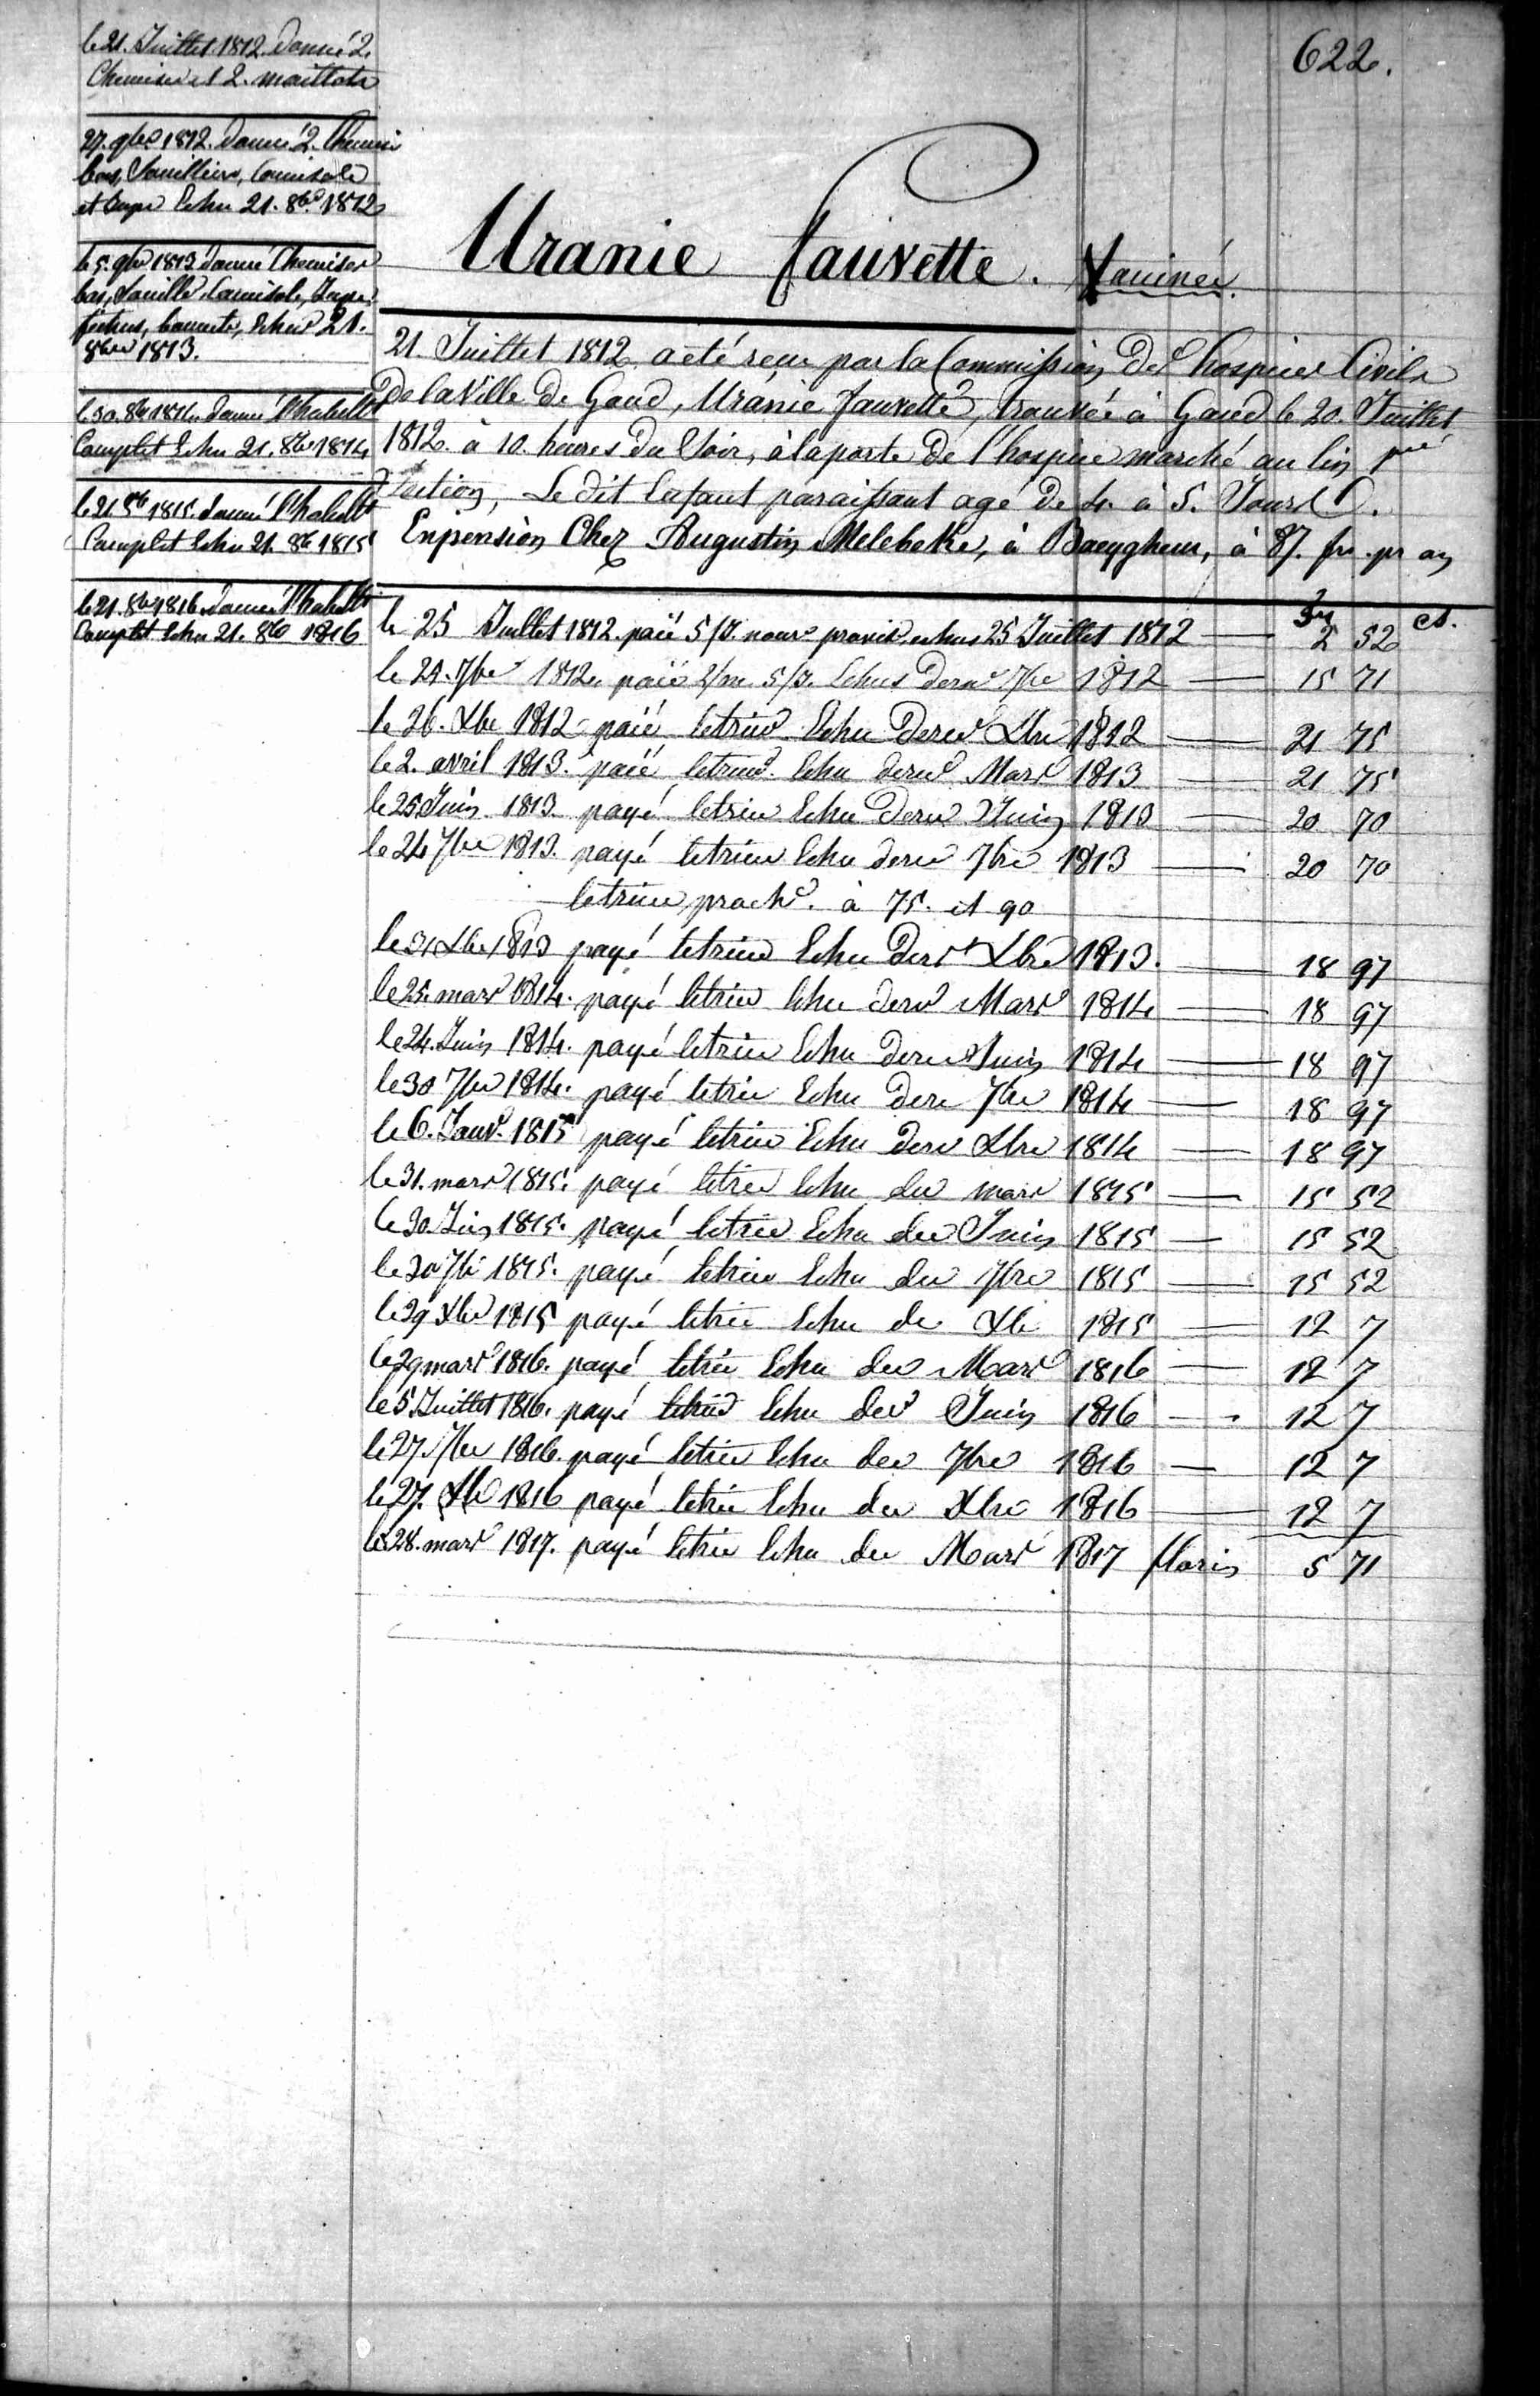 622.
le 21. Juillet 1812. donné 2.
Chemises et 2. maillots
27. 9bre 1812. donné 2. Chemis
bas, Souilliers, Camisole
et Jupe Echu 21. 8bre 1812
le 5. 9bre 1813 donné Chemises
bas, Souille, Camisole, Jupe,
fichus, bonnets, Echus 21.
8bre 1813.
le 30. 8bre 1814. donné l'habillt
Complet Echu 21. 8bre 1814
le 21 8bre 1815. donné l'habillt
Complet Echu 21. 8bre 1815
le 21. 8bre 1816. donné l'habillt
Complet Echu 21. 8bre 1816
Uranie Fauvette. Vaccinée.
21. Juillet 1812 a été reçu par la Commission des hospices Civils
De la Ville De Gand, Uranie Fauvette, trouvée à Gand le 20. Juillet
1812. à 10. heures du Soir, à la porte De l'hospice marché au lin pre
Section, Le dit Enfant paraissant agé De 4. à 5. Jours.
En pension Chez Augustin Melebeke, à Baeyghem, à 87. frs. pr an
frs ct.
le 25 Juillet 1812. paié 5/J. nour. provis. echus 25 Juillet 1812 — 2 52
le 25. 7bre 1812. paié 2/m 5/J. Echus dern 7bre 1812 — 15 71
le 26. Xbre 1812 paié le trim Echu Dern Xbre 1812 — 21 75
le 2. avril 1813. paié le trim Echu dern Mars 1813 — 21 75
le 25 Juin 1813. payé le trim Echu Dern Juin 1813 — 20 70
le 24 7bre 1813. payé le trim Echu dern 7bre 1813 — 20 70
le trim proch. à 75. et 90
le 31 Xbre 1813 payé le trim Echu Dern Xbre 1813. — 18 97
le 25. mars 1814. payé le trim Echu dern Mars 1814 — 18 97
le 24. Juin 1814. payé le trim Echu dern Juin 1814 — 18 97
le 30 7bre 1814. payé le trim Echu dern 7bre 1814 — 18 97
le 6. Janv. 1815 payé le trim Echu dern Xbre 1814 — 18 97
le 31. mars 1815. payé le trim Echu der mars 1815 — 15 52
le 30. Juin 1815. payé le trim Echu der Juin 1815 — 15 52
le 30 7bre 1815. payé le trim Echu der 7bre 1815 — 15 52
le 29 Xbre 1815 payé le trim Echu de Xbre 1815 — 12 7
le 29 mars 1816. payé le trim Echu der Mars 1816 — 12 7
le 5 Juillet 1816. payé le trim Echu der Juin 1816 — 12 7
le 27. 7bre 1816. payé le trim Echu der 7bre 1816 — 12 7
le 27. Xbre 1816 payé le trim Echu der Xbre 1816 — 12 7
le 28. mars 1817. payé le trim Echu der Mars 1817 florins 5 71